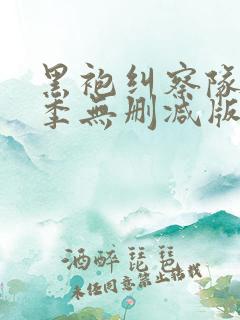 黑袍纠察队
季無删减版
酒醉琵琶
未经同意禁止转载